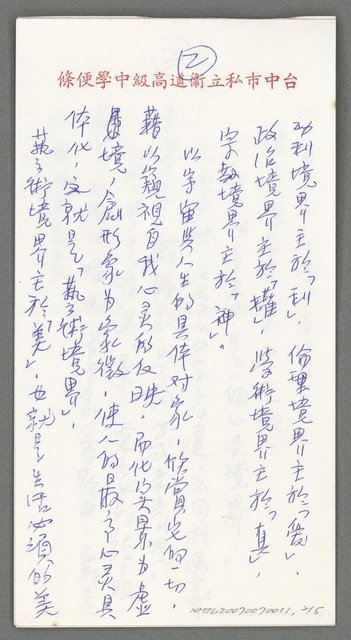 ②
台中市私立衞道高級中學便條
功利境界主於「利」，倫理境界主於「愛」，
政治境界主於「權」，學術境界主於「真」，
宗教境界主於「神」。
以宇宙與人生的具体对象，欣賞它的一切，
藉以窺視自我心灵的反映，而化实景为虛
境，創形象为象徵，使人的最高心灵具
体化，这就是「艺術境界」，
艺術境界主於「美」，也就是生活必須的美
NMTL20070070011, 2/5